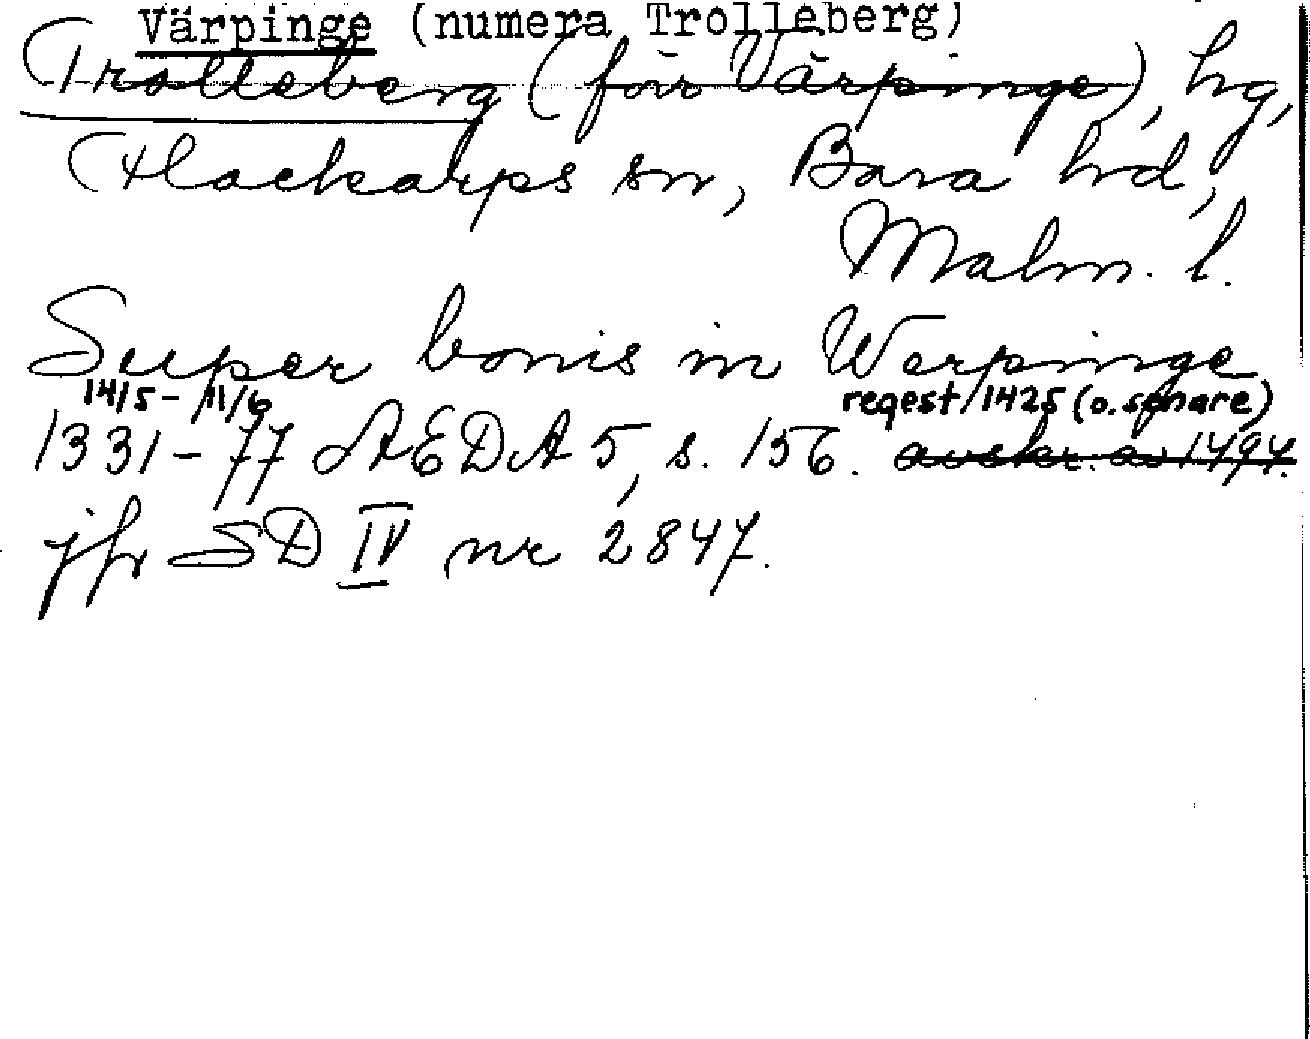 Värpinge (numera Trolleberg)
Trolleberg (förr Värpinge), hg,
Flackarps sn, Bara hd,
Malm. l.
Super bonis in Werpinge
14/5 - 11/6 regest/1425 (o. senare)
1331-77 ÆDA 5, s. 156. avskr. av 1494.
jfr SD IV nr 2847.